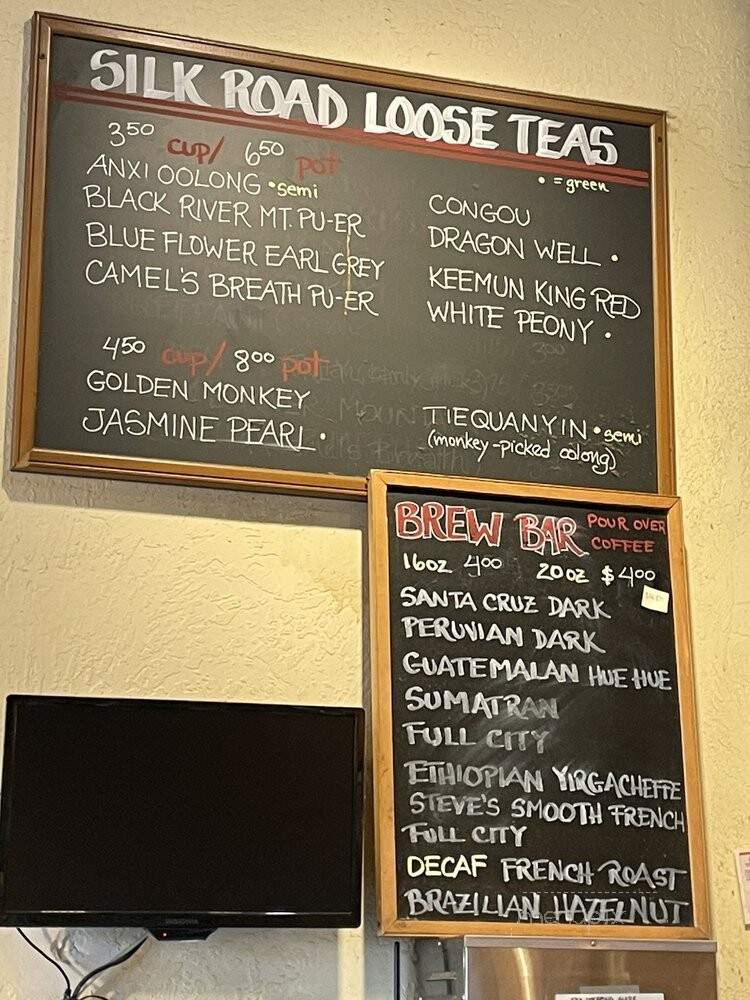 SILK ROAD LOOSE TEAS
350 CUP/ 650 pot
• = green
ANXI OOLONG •semi
BLACK RIVER MT. PU-ER
BLUE FLOWER EARL GREY
CAMEL'S BREATH PU-ER
CONGOU
DRAGON WELL •
KEEMUN KING RED
WHITE PEONY •
450 CUP/ 800 pot
GOLDEN MONKEY
JASMINE PEARL •
TIEQUANYIN •semi
(monkey-picked oolong)
BREW BAR POUR OVER
COFFEE
16oz 400 20oz $400
SANTA CRUZ DARK
PERUVIAN DARK
GUATEMALAN HUE HUE
SUMATRAN
FULL CITY
ETHIOPIAN YIRGACHEFFE
STEVE'S SMOOTH FRENCH
FULL CITY
DECAF FRENCH ROAST
BRAZILIAN HAZELNUT